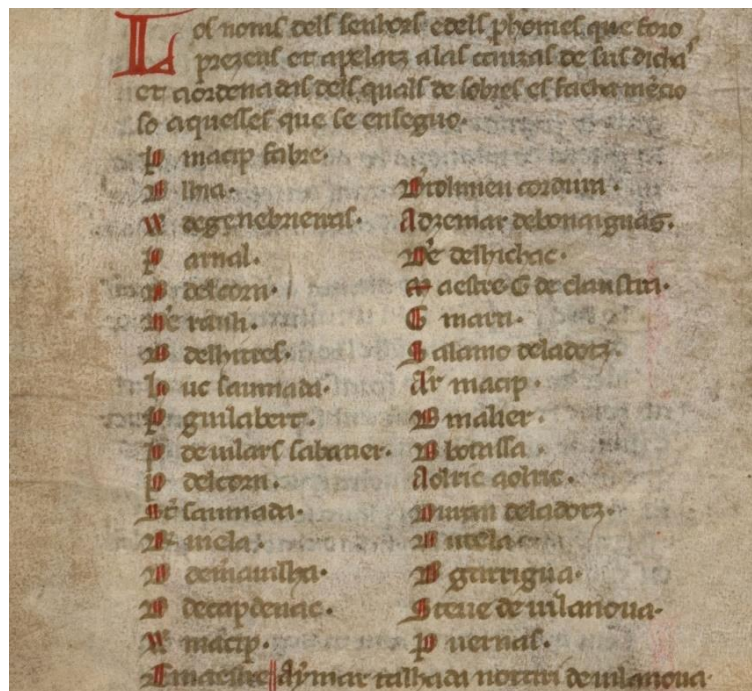 Los noms dels senhors e dels phomes que foro
prezens et apelatz a las cauzas desus dicha
et aordenadas dels quals de sobres es facha mecio
so aquesses que se enseguo.
P macip fabre.
B lhia.
W degenebrieiras.
P arnal.
B delcorn.
B delhutes.
huc saumada.
P guilabert.
P deuilars sabatier.
P delcorn.
saumada.
B uiela.
B
B decapdenac.
W macip.
Bertolmieu cordurii.
Adzemar debonaiguas.
delbichac.
Maestre G de claustri.
G marti.
Salamo deladotz.
Ar macip.
B malier.
B botassa.
Aolric aolric.
Duran deladotz.
B uitela.
B garrigua.
Steue de uilanoua.
P uernas.
E maestre Aymar talhada notari de uilanoua.